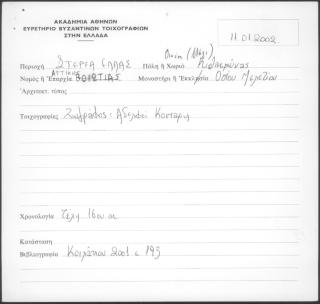 ΑΚΑΔΗΜΙΑ ΑΘΗΝΩΝ
ΕΥΡΕΤΗΡΙΟ ΒΥΖΑΝΤΙΝΩΝ ΤΟΙΧΟΓΡΑΦΙΩΝ
ΣΤΗΝ ΕΛΛΑΔΑ
11.01.2002
Περιοχή ΣΤΕΡΕΑ ΕΛΛΑΣ Πόλη ή Χωριό Κιθαιρώνας
Νομός ή Επαρχία ΑΤΤΙΚΗΣ ΒΟΙΩΤΙΑΣ Μοναστήρι ή Εκκλησία Οσίου Μελετίου
Αρχιτεκτ. τύπος
Τοιχογραφίες Ζωγράφος: Αδελφοί Κονταρή
Χρονολογία Τέλη 16ου αι
Κατάσταση
Βιβλιογραφία 2001 σ 193